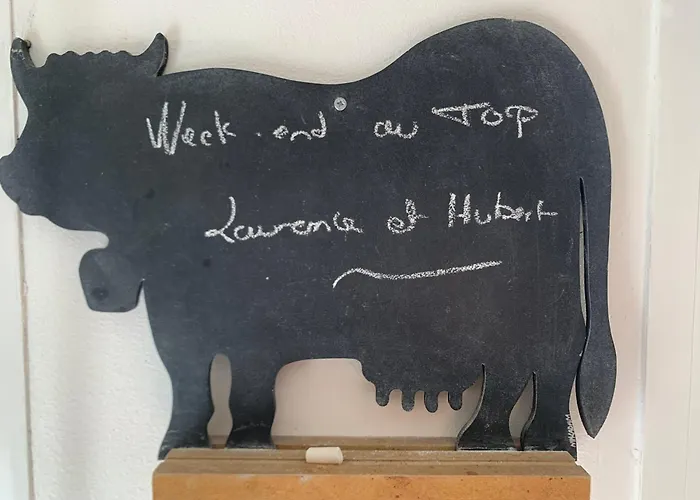 Week-end au Top
Laurence et Hubert